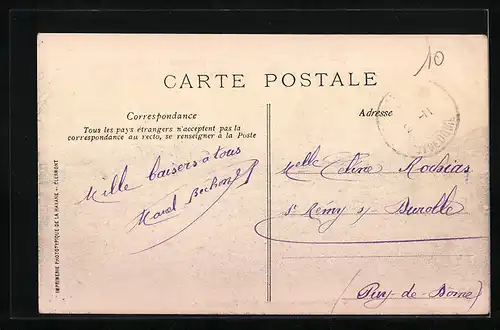 10
CARTE POSTALE
Correspondance
Tous les pays étrangers n'acceptent pas la
correspondance au recto, se renseigner à la Poste
Mille baisers à tous
Adresse
PUY-DE-DOME
Melle Céline Rochias
St Rémy s/ Durolle
(Puy-de-Dome)
IMPRIMERIE PHOTOTYPIQUE DE LA HALLE - CLERMONT